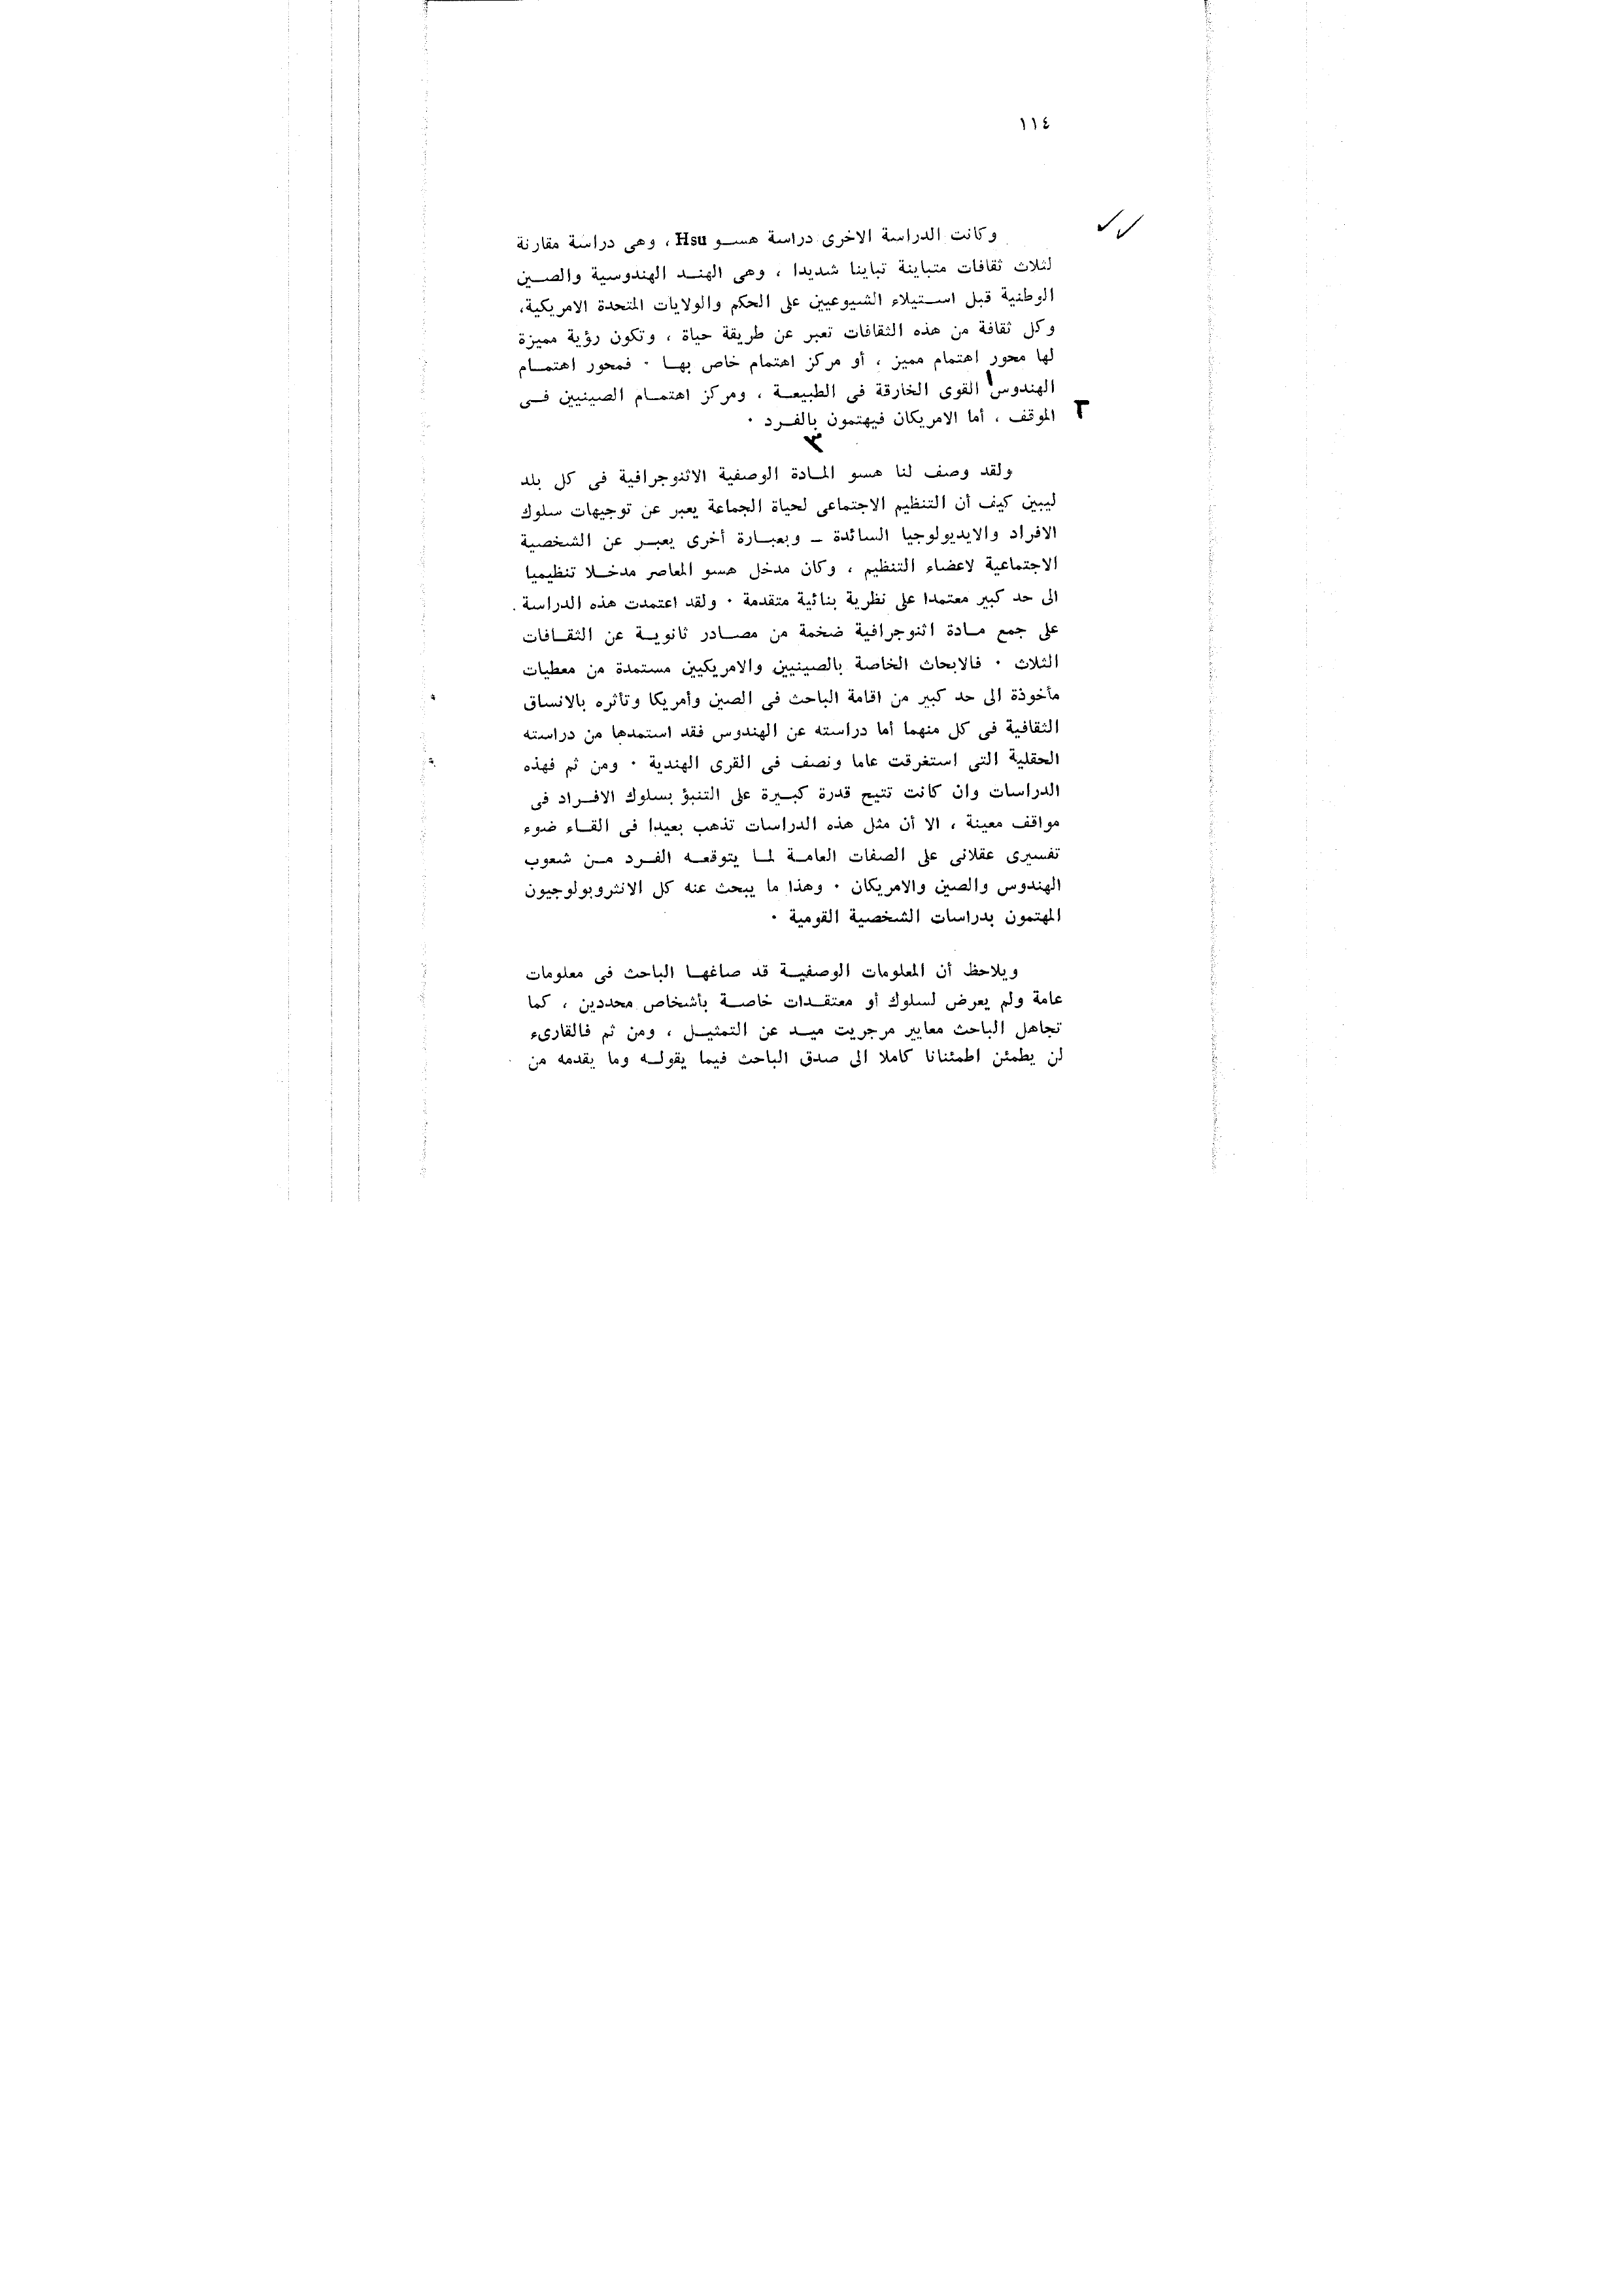 ١١٤
وكانت الدراسة الاخرى دراسة هسو Hsu ، وهى دراسة مقارنة
لثلاث ثقافات متباينة تباينا شديدا ، وهى الهند الهندوسية والصين
الوطنية قبل استيلاء الشيوعيين على الحكم والولايات المتحدة الامريكية،
وكل ثقافة من هذه الثقافات تعبر عن طريقة حياة ، وتكون رؤية مميزة
لها محور اهتمام مميز ، أو مركز اهتمام خاص بها ٠ فمحور اهتمام
الهندوس القوى الخارقة فى الطبيعة ، ومركز اهتمام الصينيين فى
الموقف ، أما الامريكان فيهتمون بالفرد ٠
ولقد وصف لنا هسو المادة الوصفية الاثنوجرافية فى كل بلد
ليبين كيف أن التنظيم الاجتماعى لحياة الجماعة يعبر عن توجيهات سلوك
الافراد والايديولوجيا السائدة ـ وبعبارة أخرى يعبر عن الشخصية
الاجتماعية لاعضاء التنظيم ، وكان مدخل هسو المعاصر مدخلا تنظيميا
الى حد كبير معتمدا على نظرية بنائية متقدمة ٠ ولقد اعتمدت هذه الدراسة
على جمع مادة اثنوجرافية ضخمة من مصادر ثانوية عن الثقافات
الثلاث ٠ فالابحاث الخاصة بالصينيين والامريكيين مستمدة من معطيات
مأخوذة الى حد كبير من اقامة الباحث فى الصين وأمريكا وتأثره بالانساق
الثقافية فى كل منهما أما دراسته عن الهندوس فقد استمدها من دراسته
الحقلية التى استغرقت عاما ونصف فى القرى الهندية ٠ ومن ثم فهذه
الدراسات وان كانت تتيح قدرة كبيرة على التنبؤ بسلوك الافراد فى
مواقف معينة ، الا أن مثل هذه الدراسات تذهب بعيدا فى القاء ضوء
تفسيرى عقلانى على الصفات العامة لما يتوقعه الفرد من شعوب
الهندوس والصين والامريكان ٠ وهذا ما يبحث عنه كل الانثروبولوجيون
المهتمون بدراسات الشخصية القومية ٠
ويلاحظ أن المعلومات الوصفية قد صاغها الباحث فى معلومات
عامة ولم يعرض لسلوك أو معتقدات خاصة بأشخاص محددين ، كما
تجاهل الباحث معايير مرجريت ميد عن التمثيل ، ومن ثم فالقارىء
لن يطمئن اطمئنانا كاملا الى صدق الباحث فيما يقوله وما يقدمه من